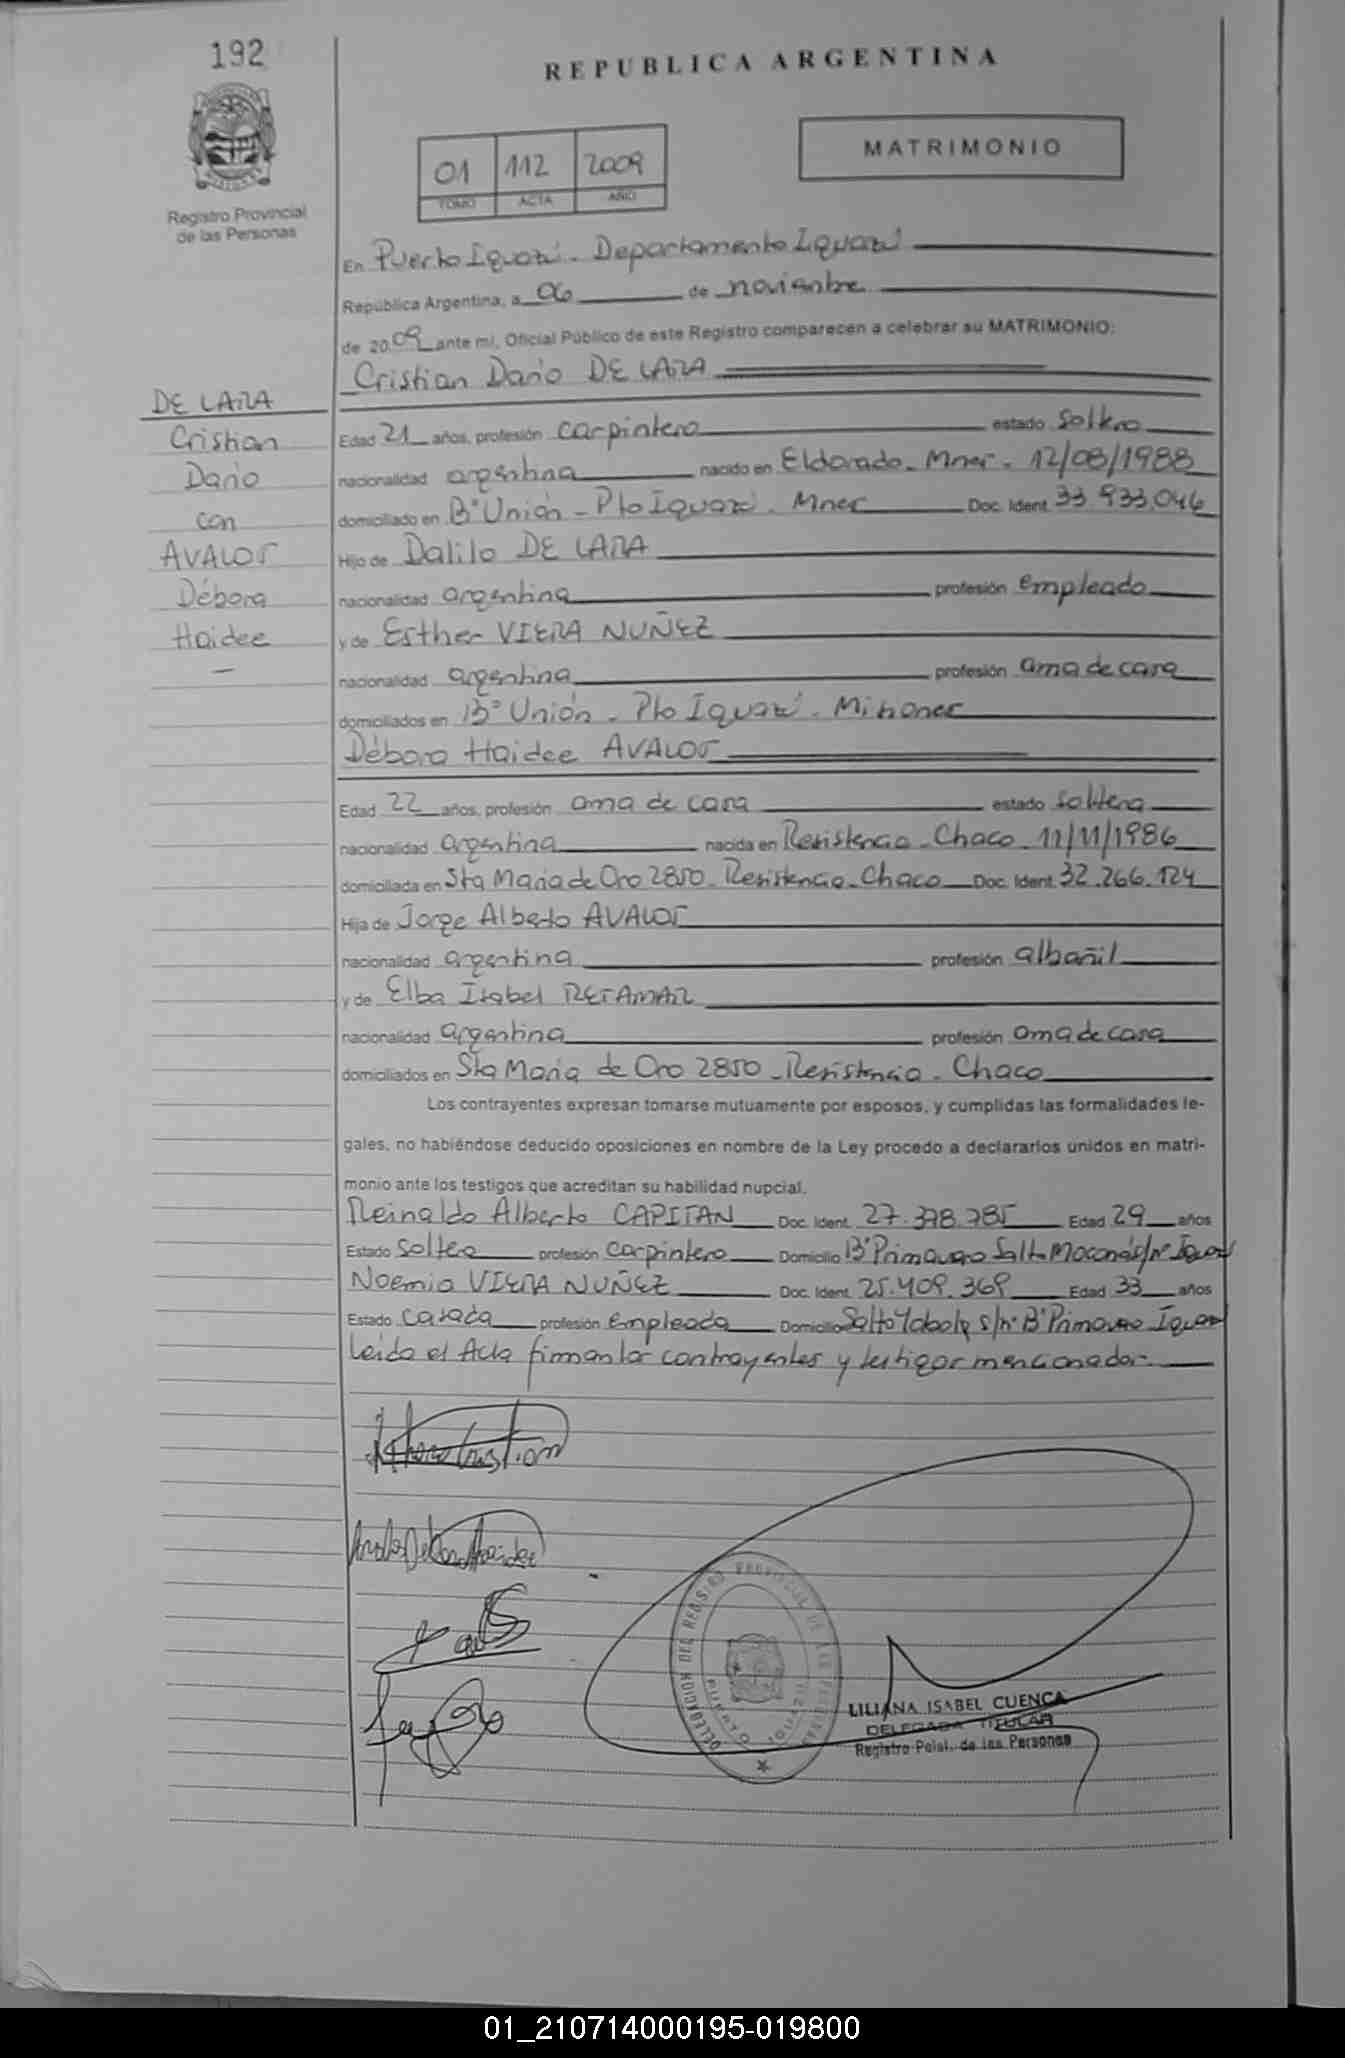 192
REPUBLICA ARGENTINA
01 112 2009
TOMO ACTA AÑO
MATRIMONIO
Registro Provincial
de las Personas
En Puerto Iguazú - Departamento Iguazú
República Argentina, a 06 de noviembre
de 2009 ante mi, Oficial Público de este Registro comparecen a celebrar su MATRIMONIO:
Cristian Dario DE LARA
DE LARA
Cristian
Dario
con
AVALOS
Débora
Haidee
Edad 21 años, profesión carpintero estado soltero
nacionalidad argentina nacido en Eldorado - Mnes - 12/08/1988
domiciliado en B° Unión - Pto Iguazú - Mnes Doc. Ident. 33.933.046
Hijo de Dalilo DE LARA
nacionalidad argentina profesión empleado
y de Esther VIERA NUÑEZ
nacionalidad argentina profesión ama de casa
domiciliados en B° Unión - Pto Iguazú - Misiones
Débora Haidee AVALOS
Edad 22 años, profesión ama de casa estado soltera
nacionalidad argentina nacida en Resistencia - Chaco - 11/11/1986
domiciliada en Sta Maria de Oro 2850 - Resistencia - Chaco Doc. Ident. 32.266.124
Hija de Jorge Alberto AVALOS
nacionalidad argentina profesión albañil
y de Elba Isabel RETAMAR
nacionalidad argentina profesión ama de casa
domiciliados en Sta Maria de Oro 2850 - Resistencia - Chaco
Los contrayentes expresan tomarse mutuamente por esposos, y cumplidas las formalidades le-
gales, no habiéndose deducido oposiciones en nombre de la Ley procedo a declararlos unidos en matri-
monio ante los testigos que acreditan su habilidad nupcial.
Reinaldo Alberto CAPITAN Doc. Ident. 27.378.785 Edad 29 años
Estado soltero profesión carpintero Domicilio B° Primavera Salto Moconá s/n° Iguazú
Noemia VIERA NUÑEZ Doc. Ident. 25.409.369 Edad 33 años
Estado casada profesión empleada Domicilio Salto s/n° B° Primavera Iguazú
Leida el Acta firman los contrayentes y testigos mencionados.
DELEGACION DEL REGISTRO PROVINCIAL DE LAS PERSONAS
PUERTO IGUAZU
LILIANA ISABEL CUENCA
DELEGADA TITULAR
Registro Pcial. de las Personas
01_210714000195-019800